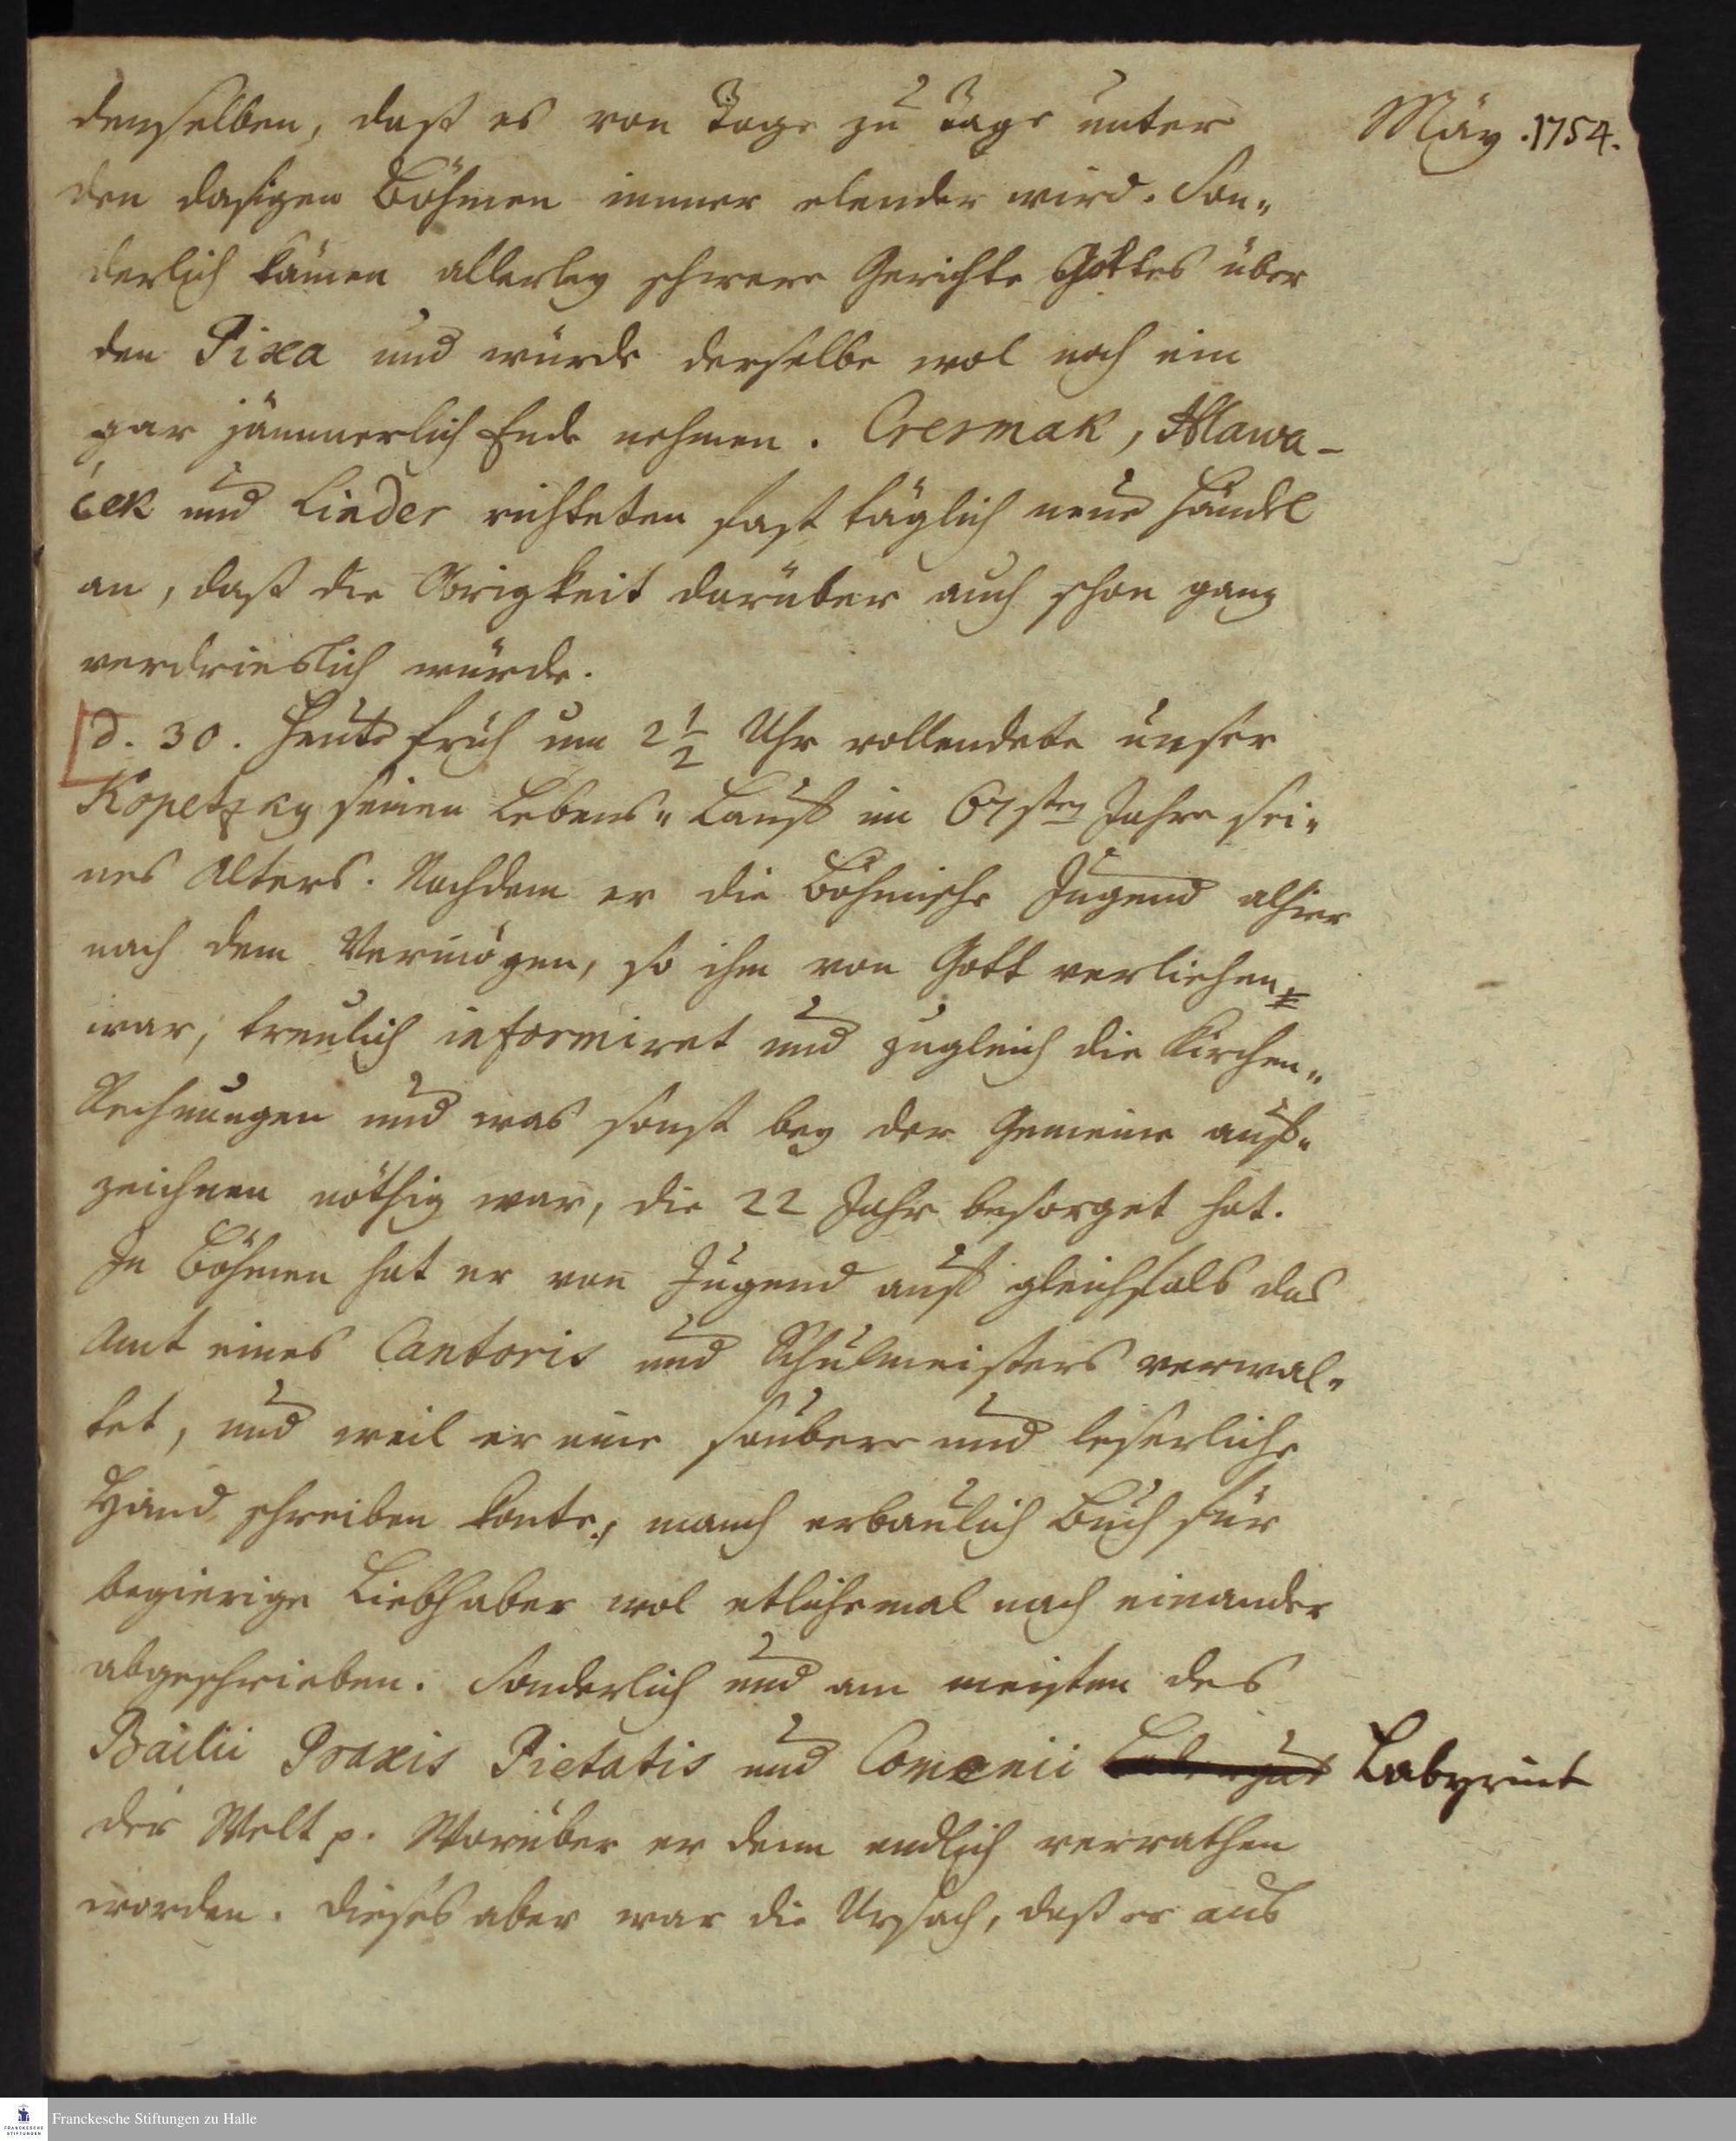 May. 1754.
denselben, daß es von Tage zu Tage unter
den dasigen Böhmen immer elender wird. Son„
derlich kämen allerley schwere Gerichte Gottes über
den Pixa und würde derselbe wol noch ein
gar jämmerlich Ende nehmen. Cresmak, Hlawa-
ček und Linder richteten fast täglich neue Händel
an, daß die Obrigkeit darüber auch schon ganz
verdrieslich würde.
d. 30. Heute früh um 2 1/2 Uhr vollendete unser
Kopetzky seinen Lebens„Lauff im 67sten Jahre sei„
nes Alters. Nachdem er die Böhmische Jugend alhier
nach dem Vermögen, so ihm von Gott verliehen
war, treulich informiret und zugleich die Kirchen„
Rechnungen und was sonst bey der Gemeine auff„
zeichnen nöthig war, die 22 Jahr besorget hat.
In Böhmen hat er von Jugend auff gleichfals das
Amt eines Cantoris und Schulmeisters verwal„
tet, und weil er eine saubere und leserliche
Hand schreiben konte, manch erbaulich Buch für
begierige Liebhaber wol etlichemal nach einander
abgeschrieben. Sonderlich und am meisten des
Bailii Praxis Pietatis und Comenii Labyrint
der Welt p. Worüber er denn endlich verrathen
worden. Dieses aber war die Ursach, daß er aus
Franckesche Stiftungen zu Halle
FRANCKESCHE
STIFTUNGEN